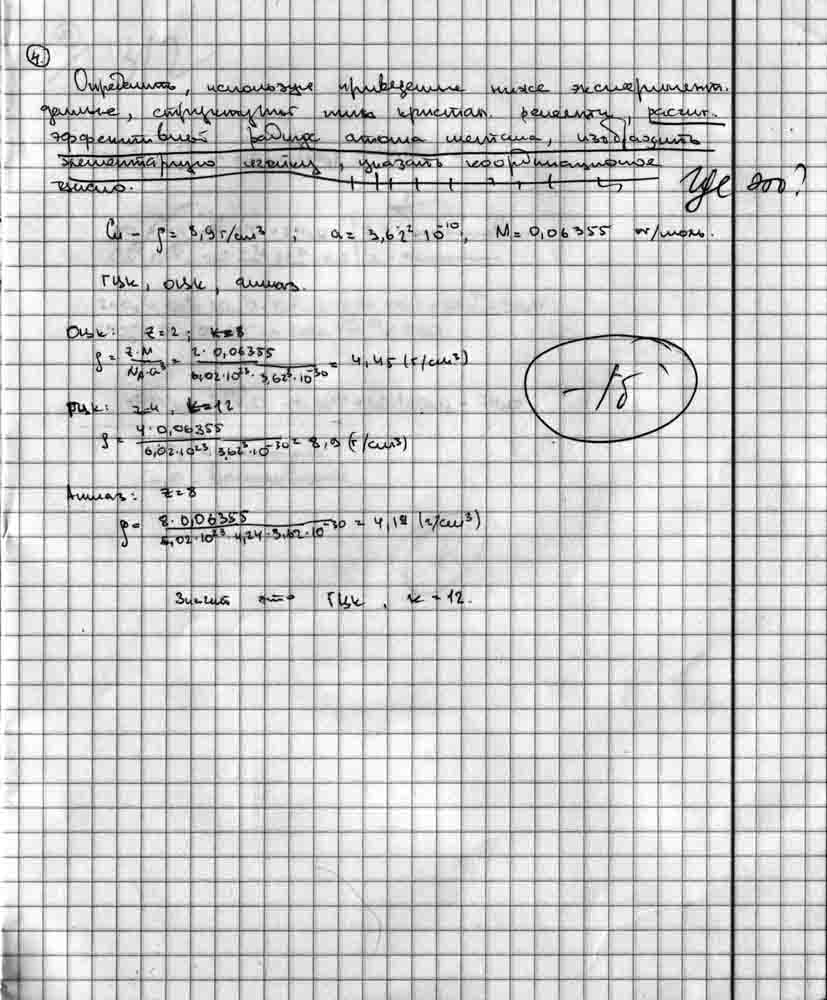 4.
Определить, используя приведенные ниже эксперимент.
данные, структурный тип кристал. решетки, расчит.
эффективный радиус атома металла, изобразить
элементарную ячейку, указать координационное
число.
Где это?
Cu - ρ = 8,9 г/см³ ; a = 3,62 · 10⁻¹⁰, M = 0,06355 кг/моль.
ГЦК, ОЦК, алмаз.
ОЦК: z=2 ; k=8
ρ = z·M / N_A·a³ = 2·0,06355 / 6,02·10²³·3,62³·10⁻³⁰ = 4,45 (г/см³)
ГЦК: z=4, k=12
ρ = 4·0,06355 / 6,02·10²³·3,62³·10⁻³⁰ = 8,9 (г/см³)
-1б
Алмаз: z=8
ρ = 8·0,06355 / 6,02·10²³·4,24·3,62·10⁻³⁰ = 4,18 (г/см³)
Значит это ГЦК, k=12.